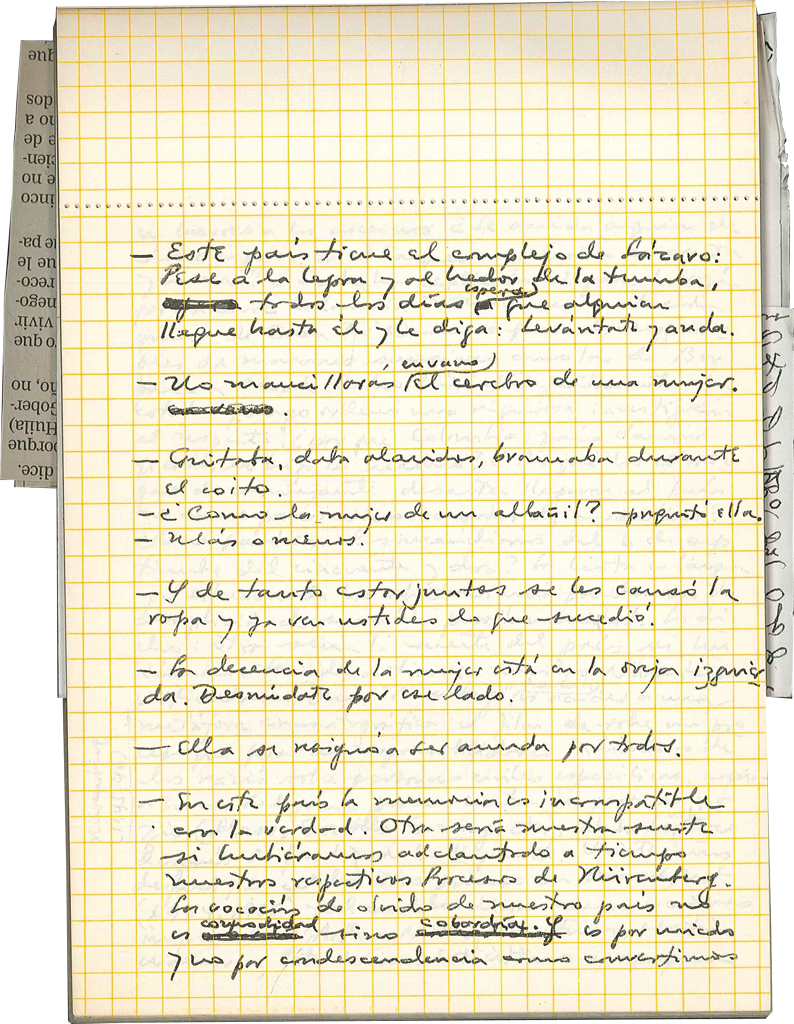 — Este país tiene el complejo de Lázaro:
Pese a la lepra y al hedor de la tumba,
espera
todos los días a que alguien
llegue hasta él y le diga: Levántate y anda.
en vano
— No mancillarás el cerebro de una mujer.
.
— Gritaba, daba alaridos, bramaba durante
el coito.
— ¿Como la mujer de un albañil? — preguntó ella.
— Más o menos.
— Y de tanto estar juntos se les cansó la
ropa y ya ven ustedes lo que sucedió.
— La decencia de la mujer está en la oreja izquier
da. Desnúdate por ese lado.
— Ella se resignó a ser amada por todos.
— En este país la memoria es incompatible
con la verdad. Otra sería nuestra suerte
si hubiéramos adelantado a tiempo
nuestros respectivos Procesos de Nüremberg.
La de olvido de nuestro país no
es comodidad sino cobardía. Y es por miedo
y no por condescendencia como convertimos
que
dos
no a
e de
cien-
e no
cinco
ue pa-
ue le
reco-
nego-
vivir
o que
ño, no
Gober-
Huila)
porque
dice.